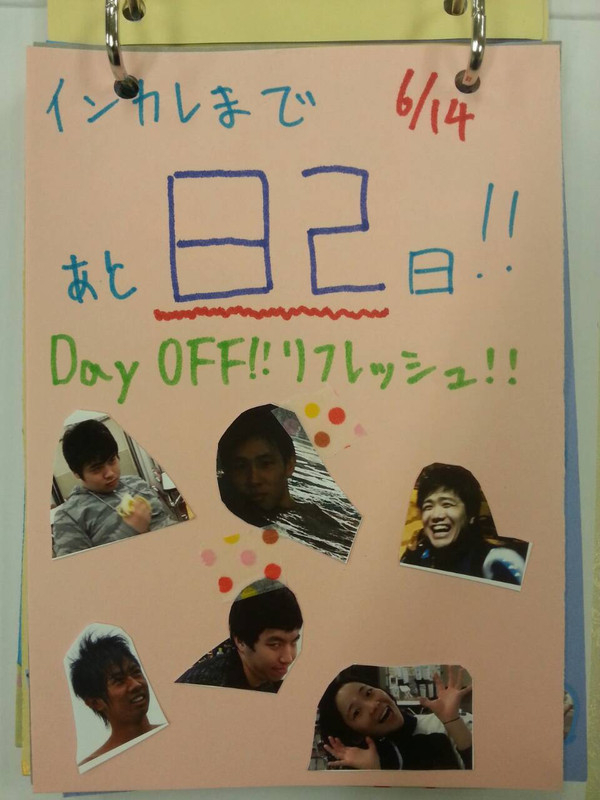 インカレまで 6/14
あと 82 日!!
Day OFF!! リフレッシュ!!